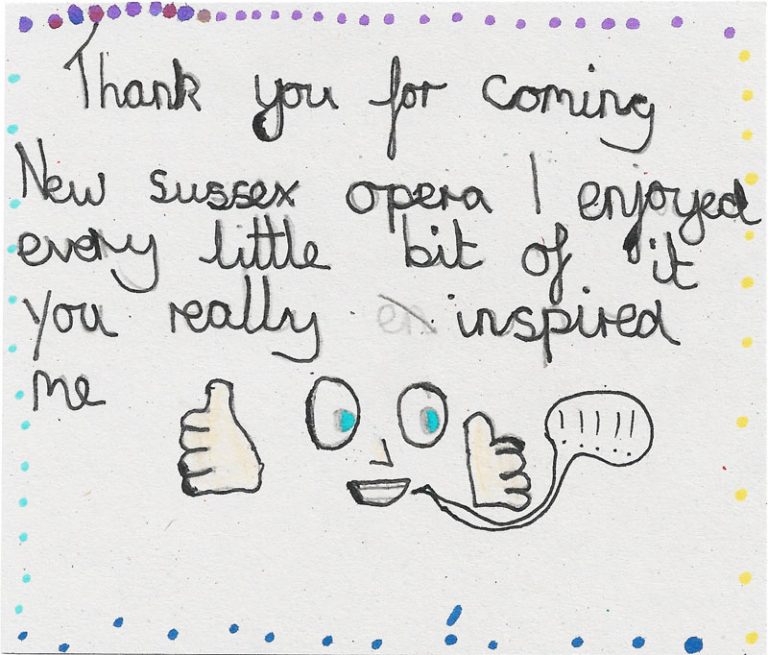 Thank you for coming
New sussex opera I enjoyed
every little bit of it
you really inspired
me
! ! ! ! !